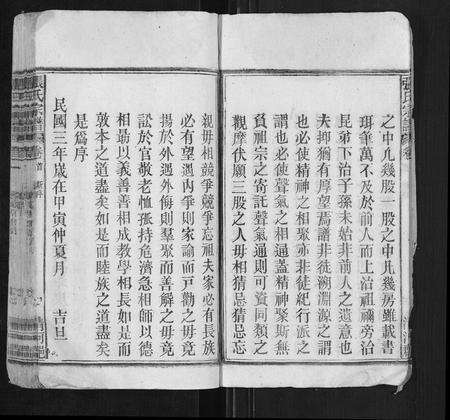 之中凡幾股一股之中凡幾房雖載書
珥筆萬不及於前人而上治祖禰旁治
昆弟下治子孫未始非前人之遺意也
夫抑猶有厚望焉譜非徒溯淵源之謂
也必使精神之相聚亦非徒紀行派之
謂也必使聲氣之相通蓋精神聚斯無
負祖宗之寄託聲氣通則可資同類之
觀摩伏願三股之人毋相猜忌猜忌忘
親毋相競爭競爭忘祖夫家必有長族
必有望遇內爭則家諭而戶勸之毋竟
揚於外遇外侮則羣聚而善解之毋竟
訟於官敬老恤孤持危濟急相師以德
相勗以義善善相成教學相長如是而
敦本之道盡矣如是而睦族之道盡矣
是為序
民國三年歲在甲寅仲夏月 吉旦
張氏宗譜 卷首